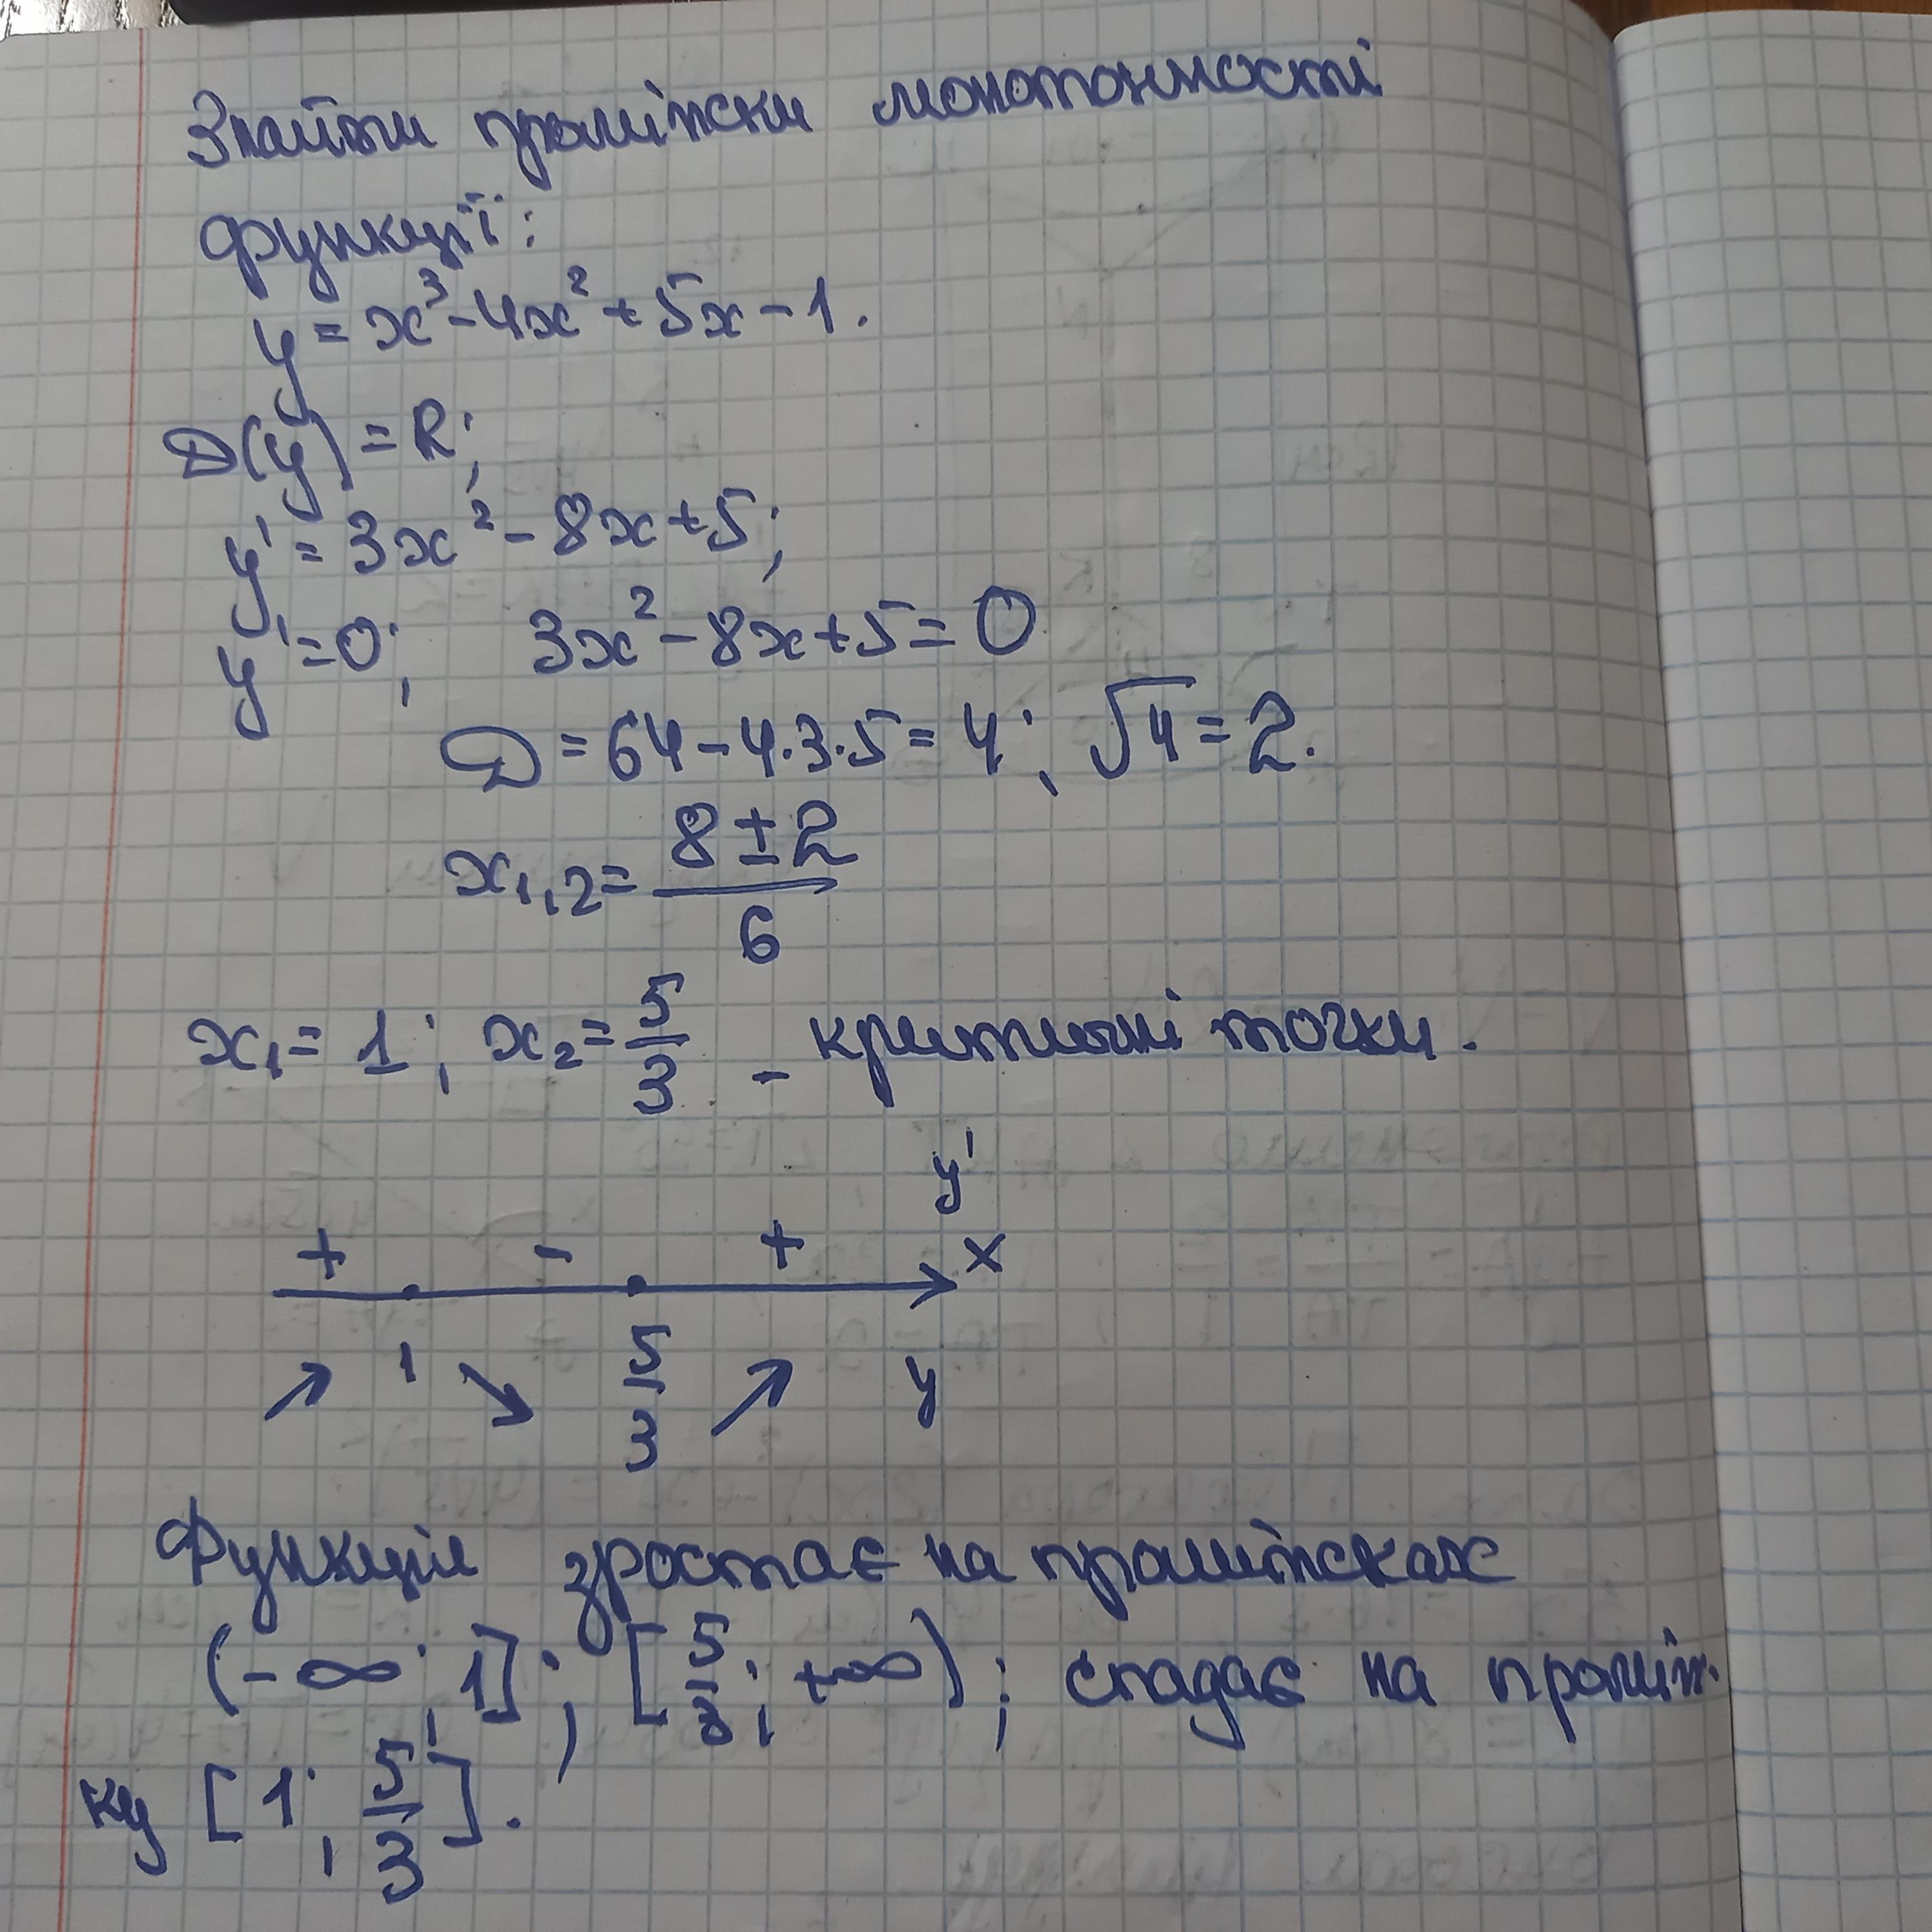 Знайти проміжки монотонності
функції:
y = x³ - 4x² + 5x - 1.
D(y) = R;
y' = 3x² - 8x + 5;
y' = 0; 3x² - 8x + 5 = 0
D = 64 - 4·3·5 = 4; √4 = 2.
x₁,₂ = (8 ± 2)/6
x₁ = 1; x₂ = 5/3 - критичні точки.
y'
+ - + x
↗ 1 ↘ 5/3 ↗ y
Функція зростає на проміжках
(-∞; 1]; [5/3; +∞); спадає на проміж-
ку [1; 5/3].